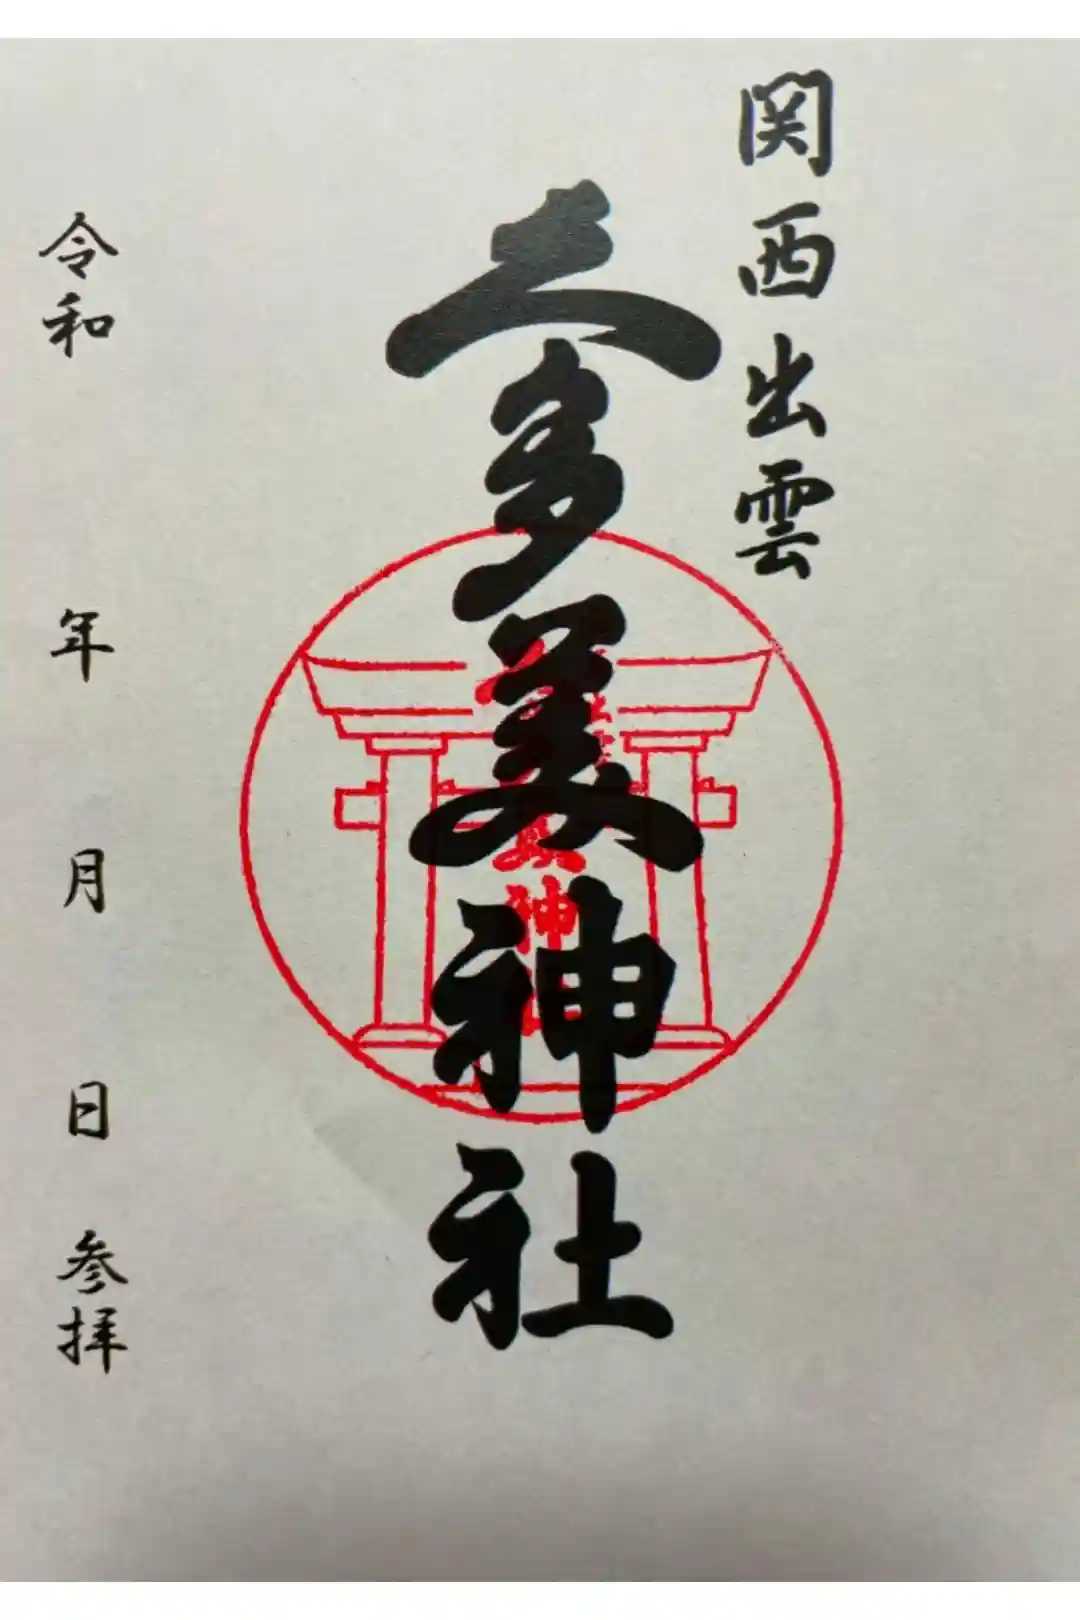 関西出雲
久多美神社
令和 年 月 日 参拝